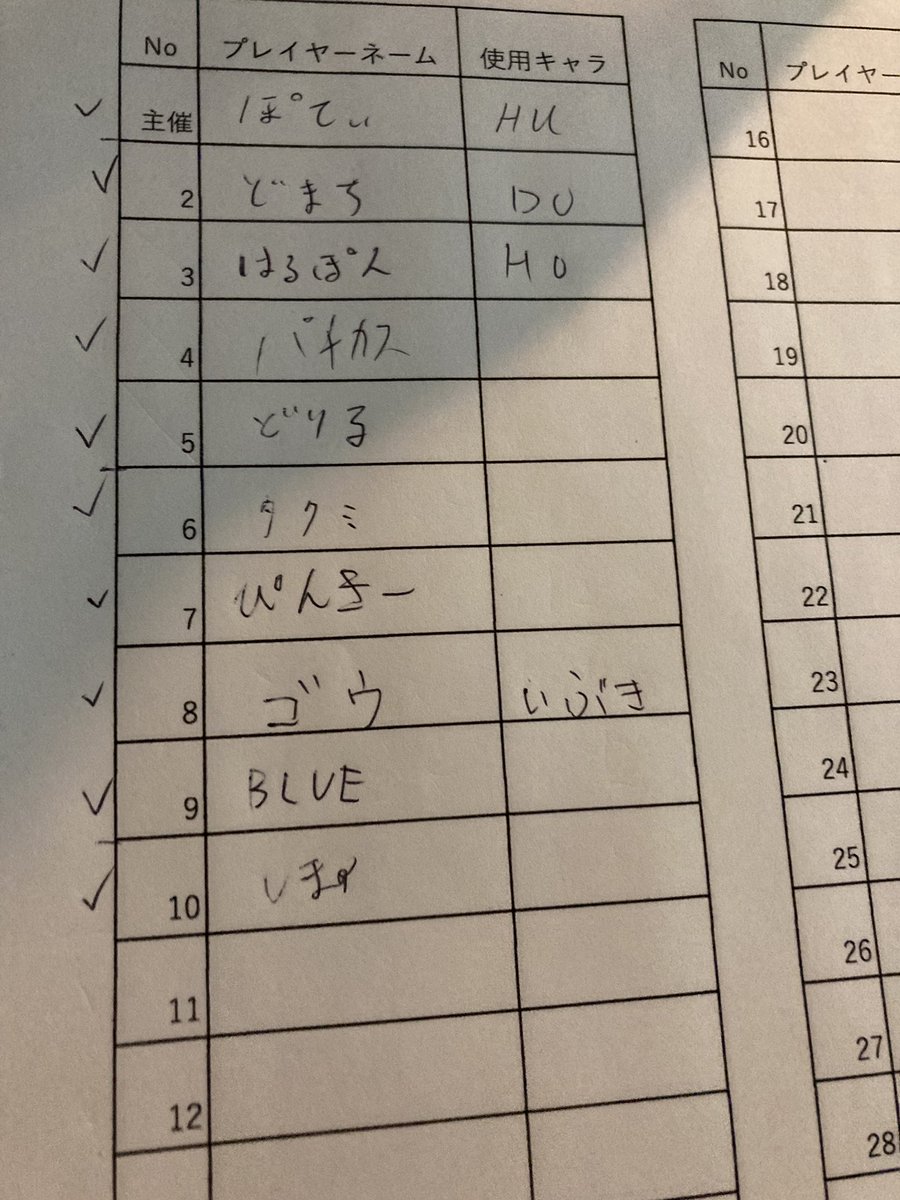 No プレイヤーネーム 使用キャラ
主催 ぽてぃ HU
2 どまち DU
3 はるぽん HU
4 バキカス
5 どりる
6 タクミ
7 ぴんきー
8 ゴウ いぶき
9 BLUE
10
11
12
No プレイヤー
16
17
18
19
20
21
22
23
24
25
26
27
28